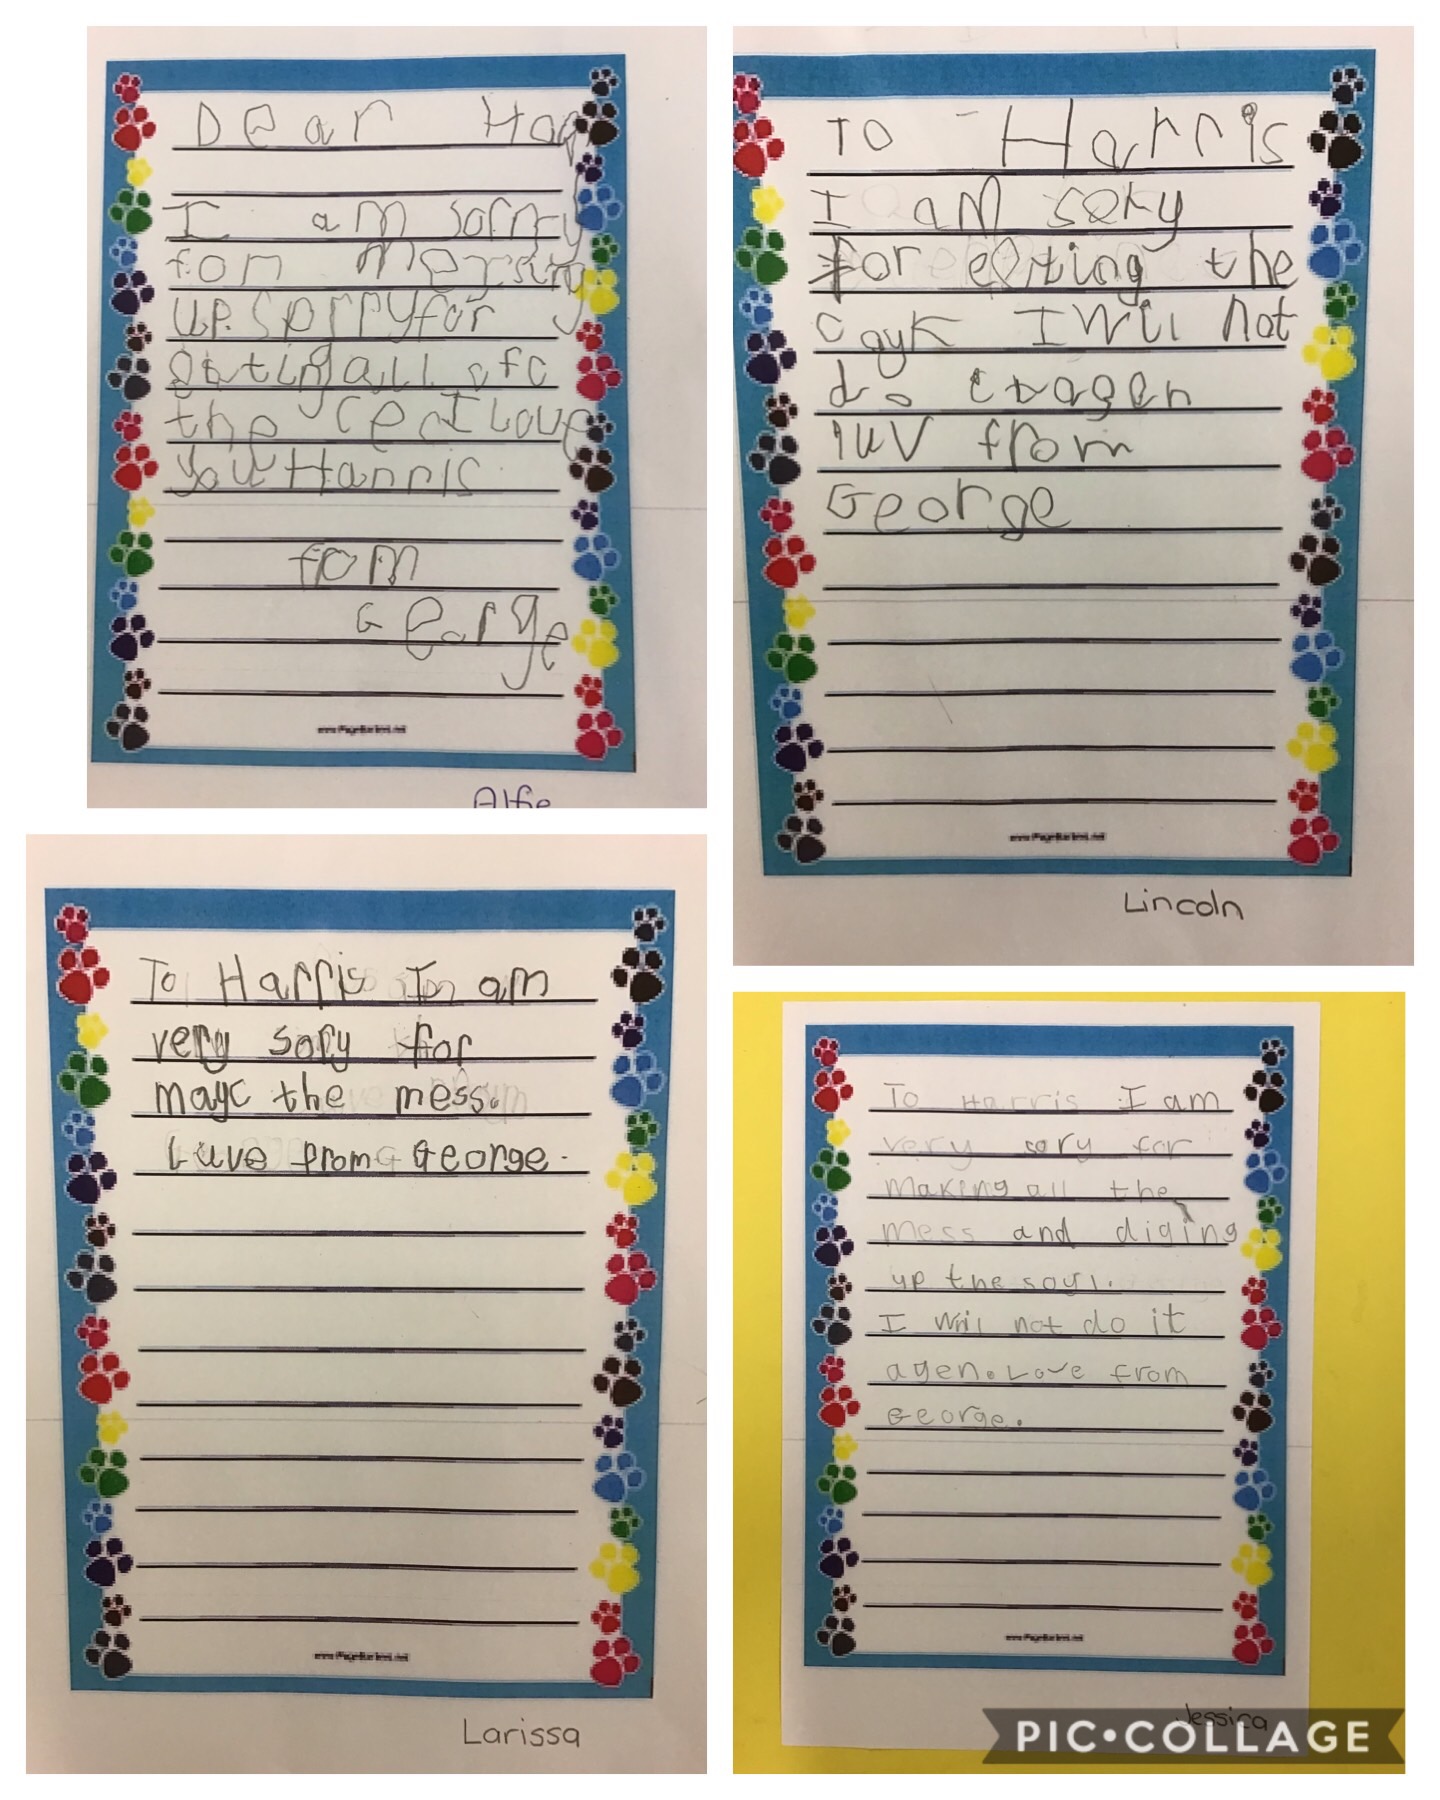 Dear
I am sorry
for
up. Sorry for
all
the I Love
you Harris
from
George
www.PageBorders.net
Alfie
To Harris
I am sory
for eating the
cayk I will not
do agen
luv from
George
www.PageBorders.net
Lincoln
To Harris I am
very sory for
the mess.
Luve from George.
www.PageBorders.net
Larissa
To Harris I am
very sory for
making all the
mess and diging
up the soyl.
I will not do it
agen. Love from
George.
www.PageBorders.net
Jessica
PIC•COLLAGE